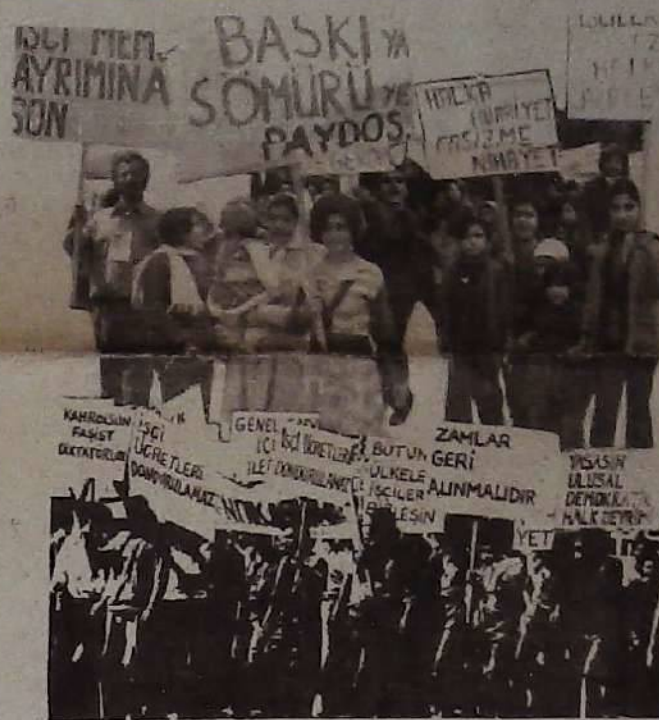 İŞÇİ MEM.
AYRIMINA
SON
BASKI YA
SÖMÜRÜ YE
PAYDOS
HALKA
HÜRRİYET
FAŞİZME
NİHAYET
KAHROLSUN
FAŞİST
DİKTATORLUK
İŞÇİ
ÜCRETLERİ
DONDURULAMAZ
GENEL
İŞÇİ ÜCRETLERİ
DONDURULAMAZ
BÜTÜN
ÜLKELE
İŞÇİLER
BİRLEŞİN
ZAMLAR
GERİ
ALINMALIDIR
YET
YAŞASIN
ULUSAL
DEMOKRATİK
HALK DEVRİM